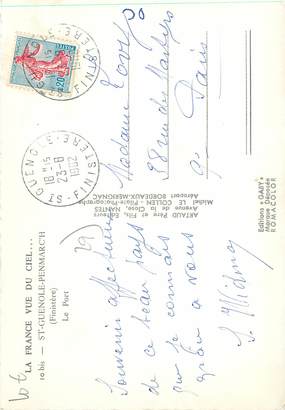 LA FRANCE VUE DU CIEL...
10 bis — ST-GUENOLE-PENMARC'H
(Finistère)
Le Port
Souvenir affectueux
de ce beau pays
que je connais
grâce à vous
ARTAUD Père et Fils, Editeurs
Avenue de la Close, NANTES
Michel LE COLLEN - Pilote-Photographe
Aéroport BORDEAUX-MERIGNAC
Editions "GABY"
Marque Déposée
ROMACOLOR
GUENOLE
18H15
23-8
1962
FINISTERE
0,20
Madame
98 rue des Martyrs
Paris